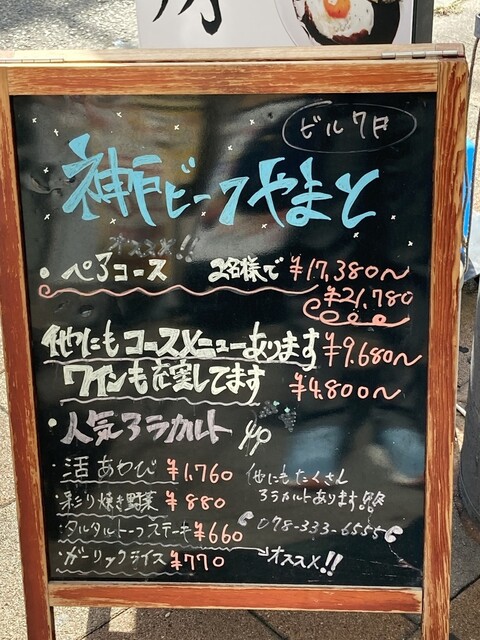 ビル7F
神戸ビーフやまと
オススメ!!
・ペアコース 2名様で ¥17,380〜
¥21,780
他にもコースメニューあります ¥9,680〜
ワインも充実してます ¥4,800〜
・人気アラカルト
・活あわび ¥1,760
・彩り焼き野菜 ¥880
・タルタルトーフステーキ ¥660
・ガーリックライス ¥770
他にもたくさん
アラカルトあります
078-333-6555
→オススメ!!